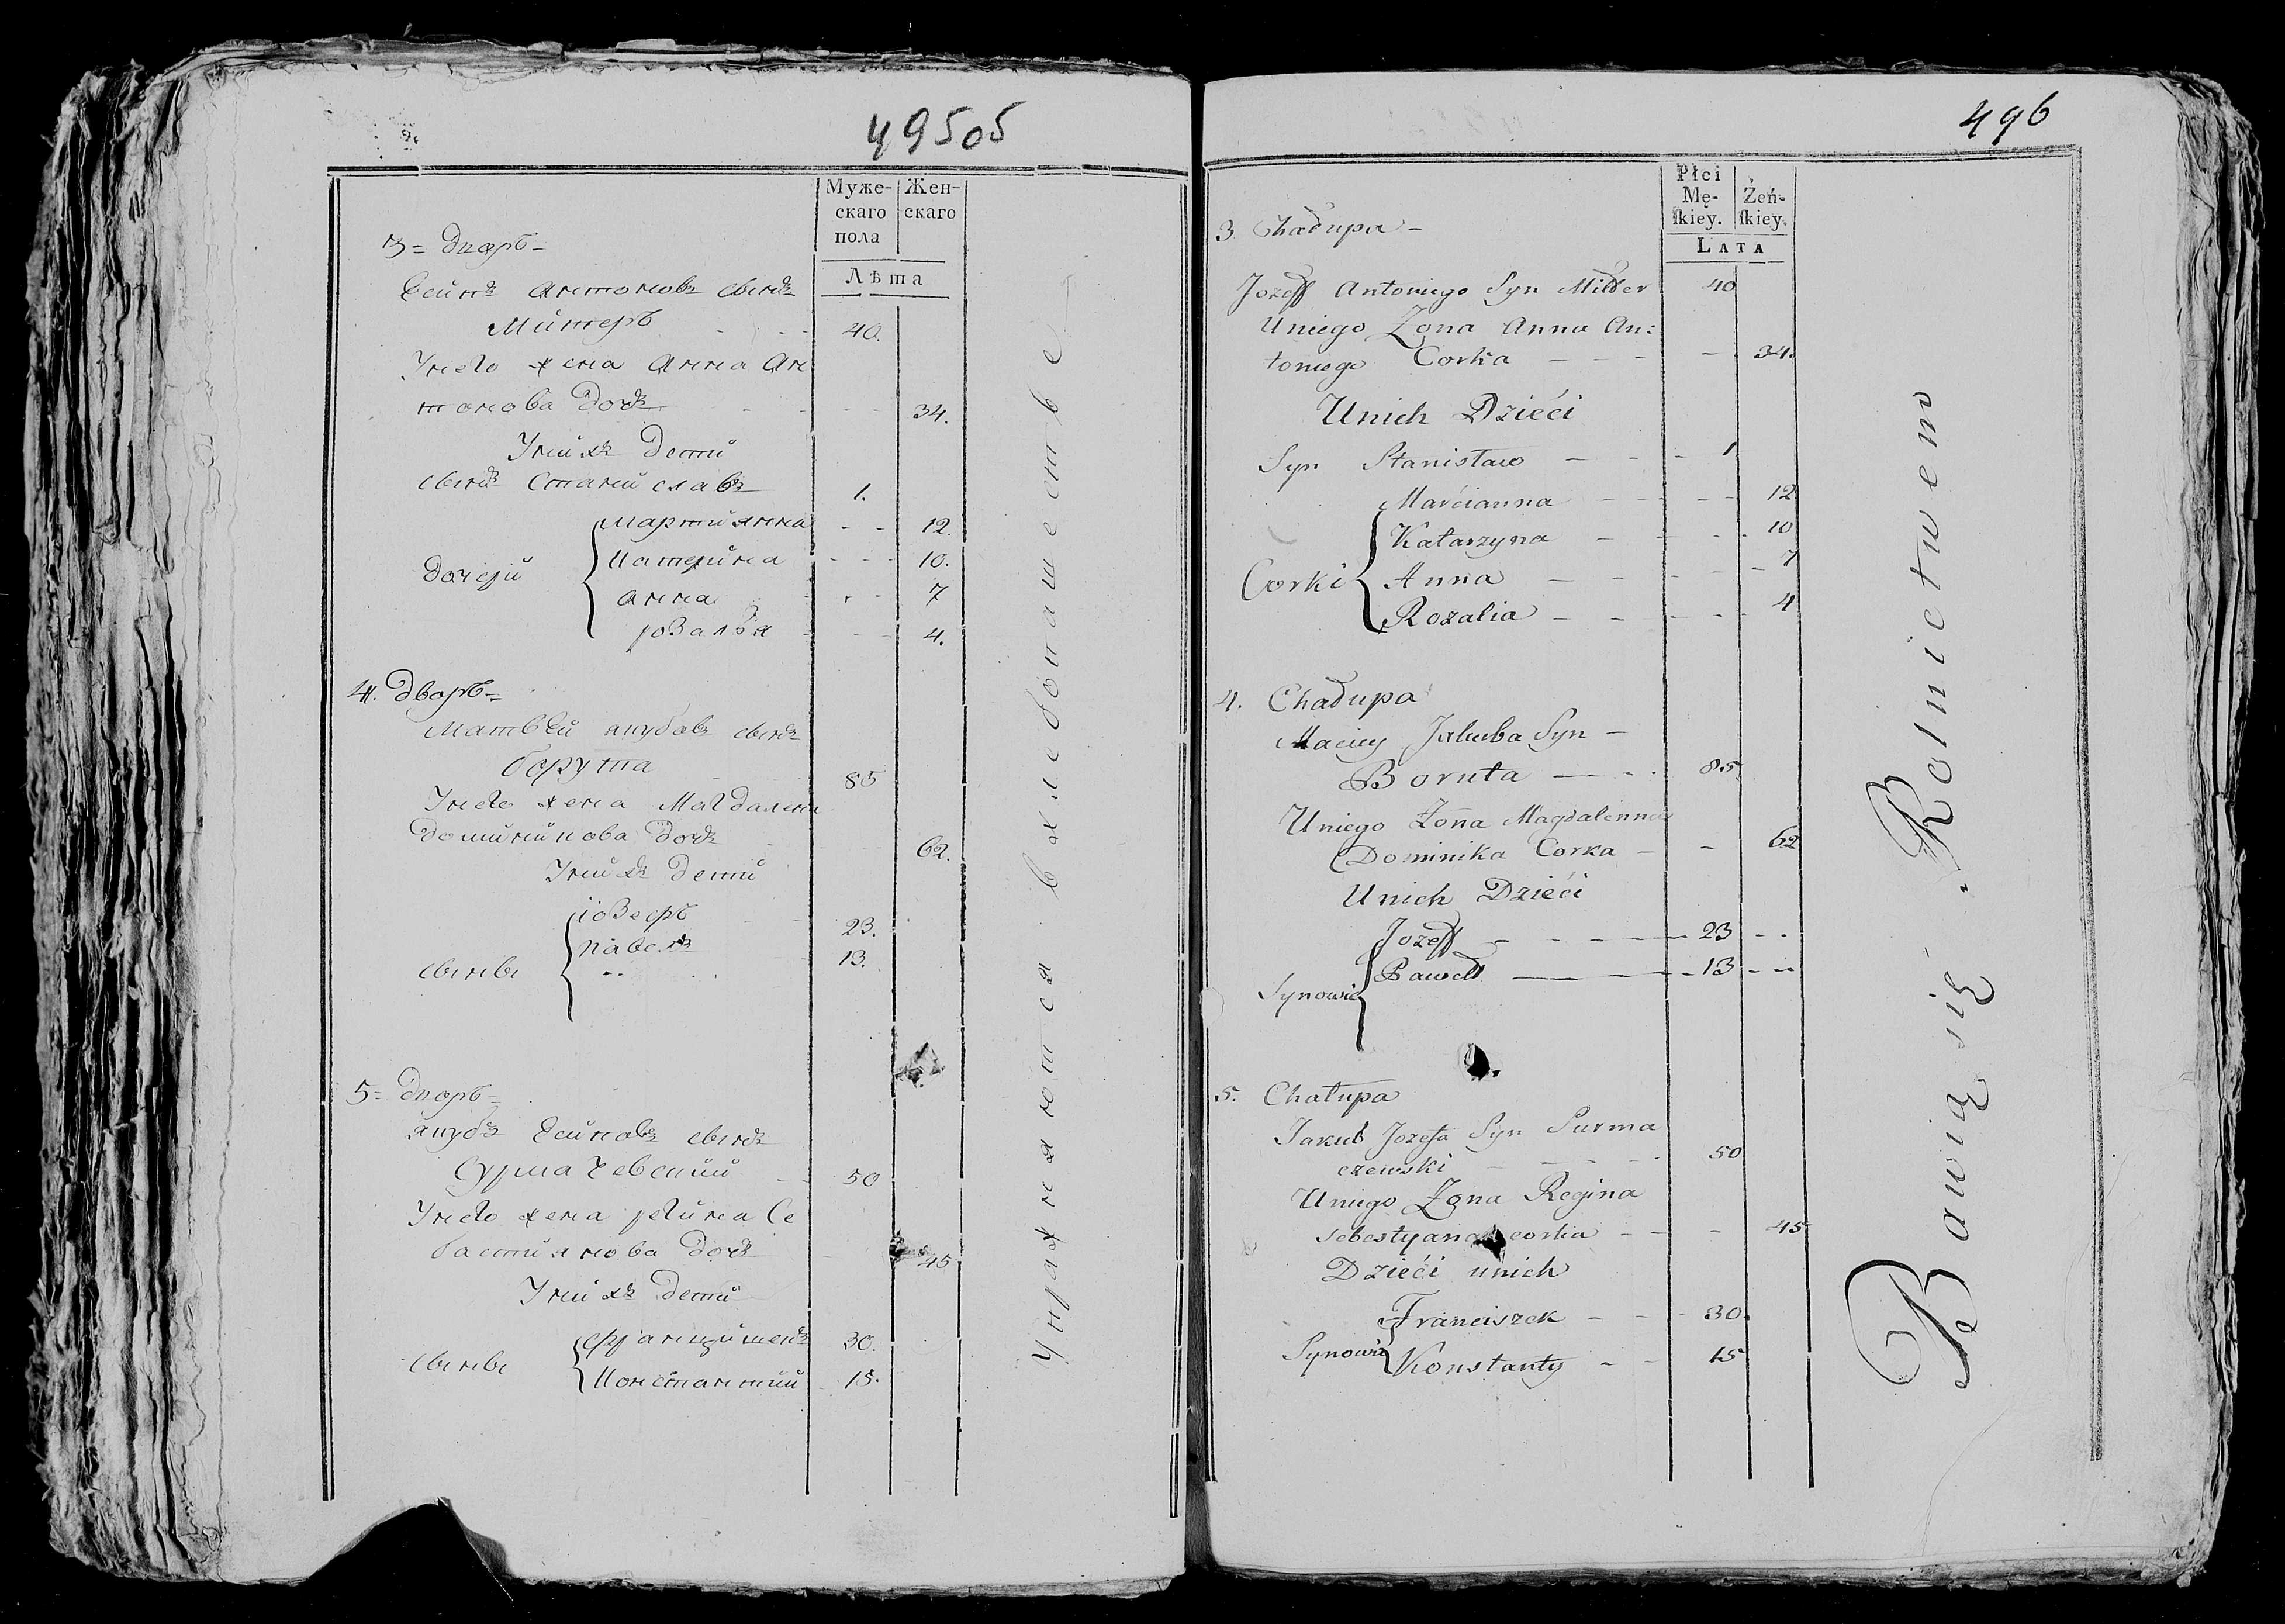 49505
Муже-
скаго
пола
Жен-
скаго
Лѣта
3= Дворъ=
Антоновъ сынъ
Митеръ 40.
Унего жена Анна Ан
тонова дочь 34.
Унихъ дети
сынъ Станиславъ 1.
Мартиянна 12.
Катерина 10.
дочери
Анна 7
розалья 4.
4. Дворъ=
Матвей якубавъ сынъ
борутна 85
Унего жена Магдалена
доминикова дочь 62.
Унихъ дети
іозефъ 23.
павелъ 13.
сынвы
5= Дворъ=
якубъ сынъ
Сурмачевский 50
Унего жена регина Се
бастиянова дочь 45
Унихъ дети
францишекъ 30.
сынвы
Константий 15.
упражняются в хлебопашестве
496
Płci
Mę-
ſkiey.
Żeń-
ſkiey.
LATA
3. Chadupa -
Jozeff Antoniego Syn Milder 40
Uniego Zona Anna An:
toniego Corka 34.
Unich Dzieći
Syn Stanisław 1
Marćianna 12
Katarzyna 10
Corki Anna 7
Rozalia 4
4. Chadupa
Maciey Jakuba Syn -
Boruta 85
Uniego Zona Magdalenna
Dominika Corka 62
Unich Dzieći
Jozeff 23
Pawełł 13
Synowie
5. Chałupa
Jakub Jozefa Syn Surma
czewski 50
Uniego Zona Regina
Sebestyana corka 45
Dzieći unich
Franciszek 30.
Synowie Konstanty 15
Bawią się Rolnictwem